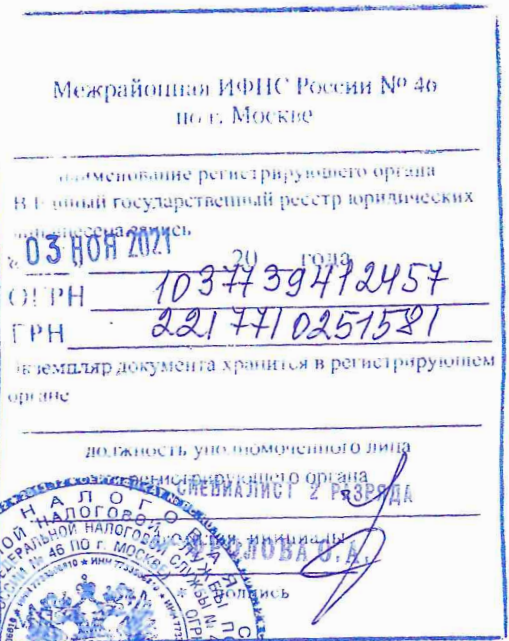 Межрайонная ИФНС России № 46
по г. Москве
наименование регистрирующего органа
В Единый государственный реестр юридических
лиц внесена запись
« 03 НОЯ 2021 20 года
ОГРН 1037739412457
ГРН 2217710251581
Экземпляр документа хранится в регистрирующем
органе
должность уполномоченного лица
регистрирующего органа
СПЕЦИАЛИСТ 2 РАЗРЯДА
фамилия, инициалы
ФРОЛОВА О.А.
подпись
НАЛОГО
НАЛОГОВОЙ
ФЕДЕРАЛЬНОЙ НАЛОГОВОЙ СЛУЖБЫ
№ 46 ПО Г. МОСКВЕ